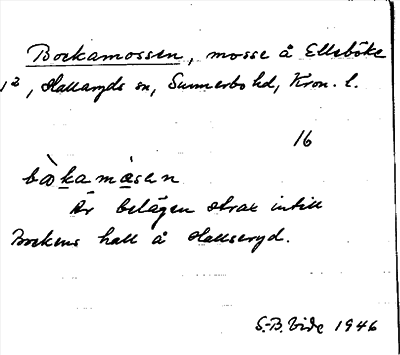 Bockamossen, mosse å Elleböke
1², Hallaryds sn, Sunnerbo hd, Kron. l.
16
bòkamåsen
Är belägen strax intill
Bockens hall å Hallseryd.
S.-B. Vide 1946